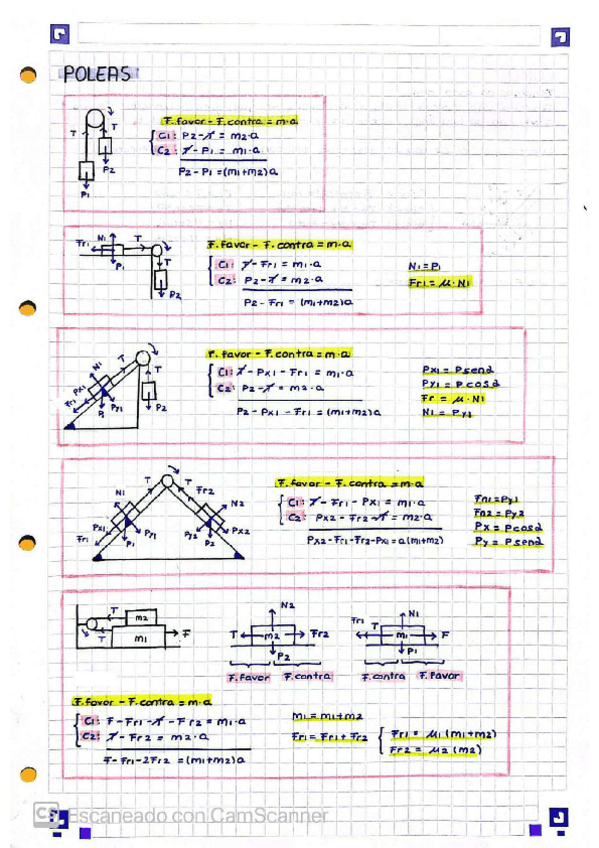 POLEAS
F. favor - F. contra = m·a
C1: P2 - T = m2·a
C2: T - P1 = m1·a
P2 - P1 = (m1+m2)a
T
T
P2
P1
F. favor - F. contra = m·a
C1: T - Fr1 = m1·a
C2: P2 - T = m2·a
P2 - Fr1 = (m1+m2)a
N1 = P1
Fr1 = μ·N1
Fr1
N1
T
P1
T
P2
F. favor - F. contra = m·a
C1: T - Px1 - Fr1 = m1·a
C2: P2 - T = m2·a
P2 - Px1 - Fr1 = (m1+m2)a
Px1 = P senα
Py1 = P cosα
Fr = μ·N1
N1 = Py1
N1
T
T
Px1
Fr1
P1
Py1
P2
F. favor - F. contra = m·a
C1: T - Fr1 - Px1 = m1·a
C2: Px2 - Fr2 - T = m2·a
Px2 - Fr1 - Fr2 - Px1 = a(m1+m2)
Fn1 = Py1
Fn2 = Py2
Px = P cosα
Py = P senα
T
T
Fr2
N1
N2
Px1
Fr1
P1
Py1
Py2
P2
Px2
T
m2
T
m1
F
N2
T
m2
Fr2
P2
F. favor
F. contra
Fr1
T
N1
m1
F
P1
F. contra
F. favor
F. favor - F. contra = m·a
C1: F - Fr1 - T - Fr2 = m1·a
C2: T - Fr2 = m2·a
F - Fr1 - 2Fr2 = (m1+m2)a
m1 = m1+m2
Fr1 = Fr1 + Fr2
Fr1 = μ1(m1+m2)
Fr2 = μ2(m2)
CS Escaneado con CamScanner